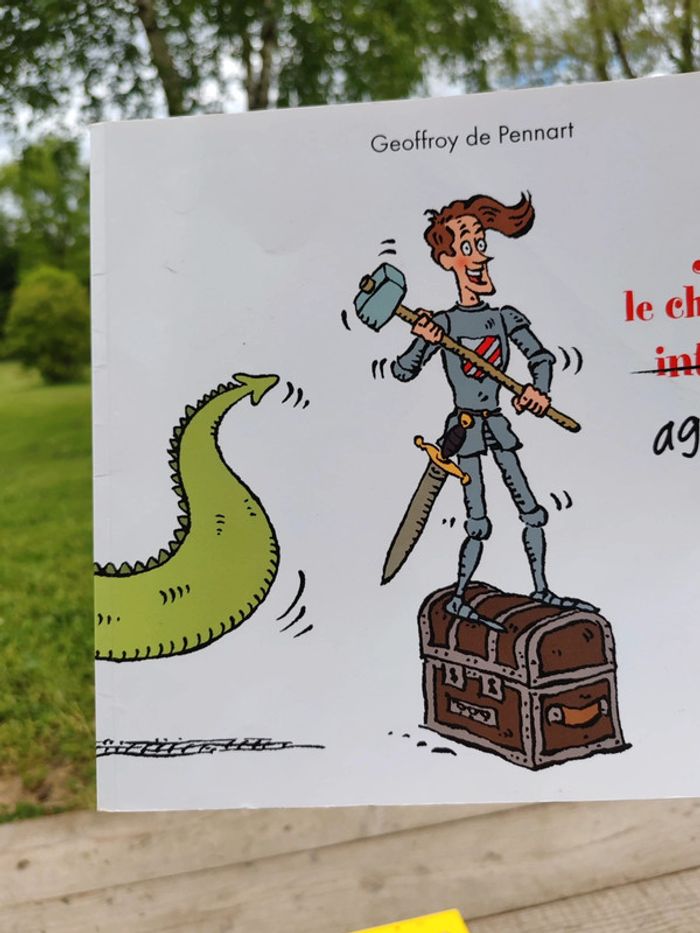 Geoffroy de Pennart
le ch
int
ag